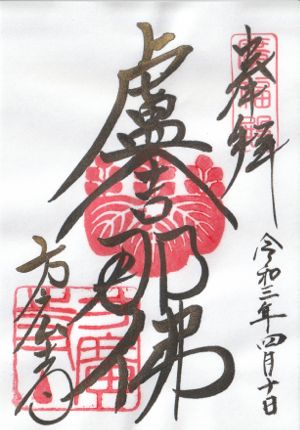 奉拝
令和三年四月十日
盧舎那佛
方広寺